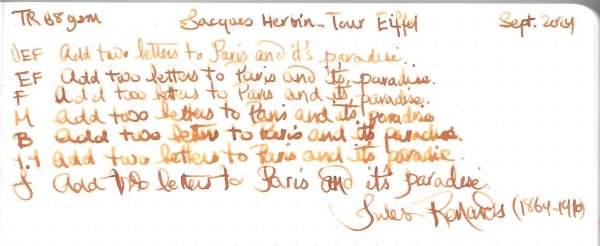 TR 68gsm Jacques Herbin - Tour Eiffel Sept. 2024
UEF Add two letters to Paris and it's paradise.
EF Add two letters to Paris and it's paradise.
F Add two letters to Paris and its paradise.
M Add two letters to Paris and its paradise
B Add two letters to Paris and it's paradise.
1.1 Add two letters to Paris and it's paradise.
J Add two letters to Paris and it's paradise.
Jules Renards (1864-1910)